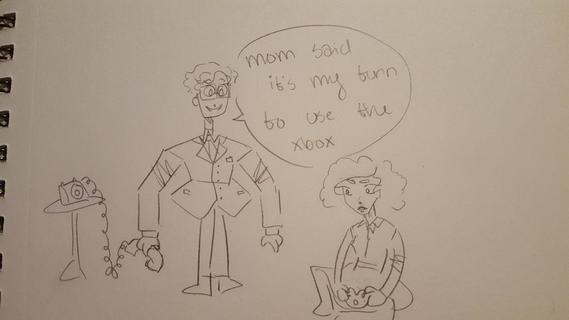 mom said
it's my turn
to use the
xbox